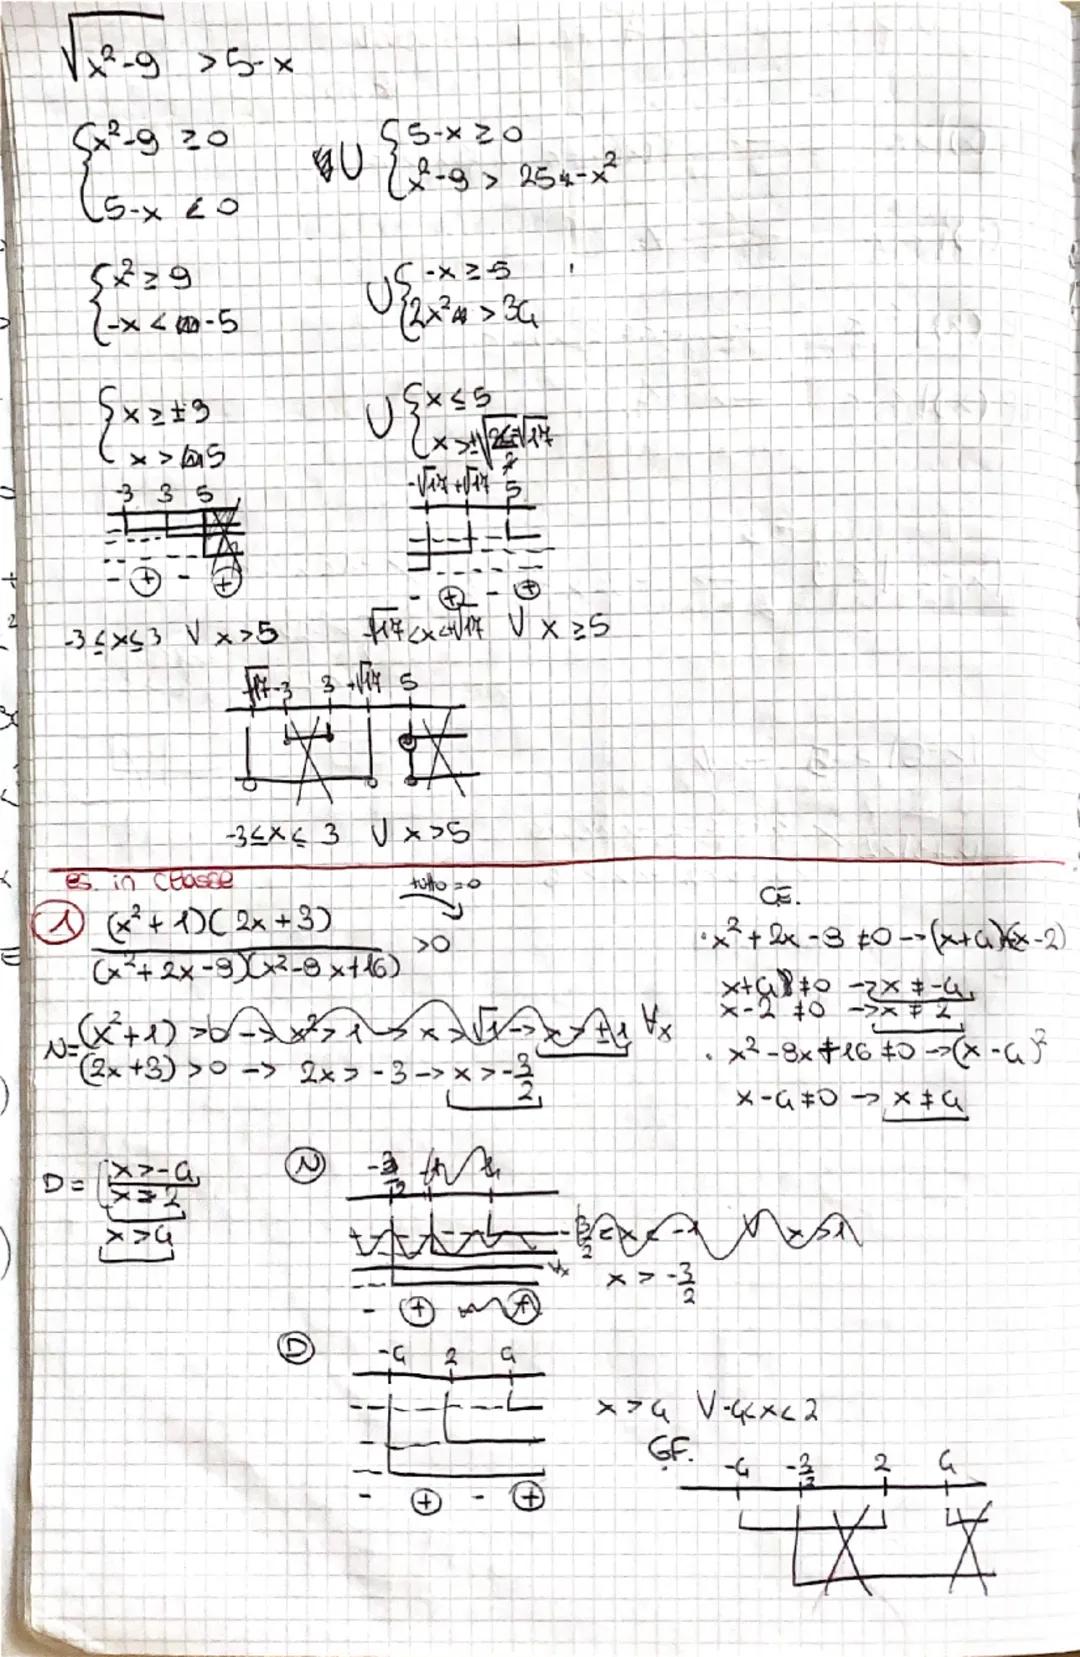 √x²-9 > 5-x
{x²-9 ≥0 ∪ {5-x ≥0
{5-x <0 {x²-9 > 25+-x²
{x² ≥ 9 ∪ {-x ≥ -5
{-x < -5 {2x² > 34
{x ≥ ±3 ∪ {x ≤ 5
{x > 5 {x > ±√17
-3 3 5 -√17 +√17 5
- + - + - + - +
-3 ≤ x ≤ 3 ∨ x>5 -√17 < x < +√17 ∨ x ≥5
-√17 -3 3 +√17 5
-3 ≤ x ≤ 3 ∨ x>5
es. in classe
tutto =0
C.E.
1 (x²+1)(2x+3) / (x²+2x-8)(x²-8x+16) >0
• x²+2x-8 ≠0 -> (x+4)(x-2)
x+4 ≠0 -> x ≠ -4
x-2 ≠0 -> x ≠ 2
N= (x²+1) >0 -> x²>1 -> x > √1 -> x > ±1 ∀x
• x²-8x+16 ≠0 -> (x-4)²
(2x+3) >0 -> 2x > -3 -> x > -3/2
x-4 ≠0 -> x ≠ 4
D= x>-4
x > 2
x>4
N -3/2
-3/2 < x < -1 ∨ x>1
∀x
x > -3/2
- + +
D -4 2 4
x>4 ∨ -4<x<2
- + - +
G.F. -4 -3/2 2 4